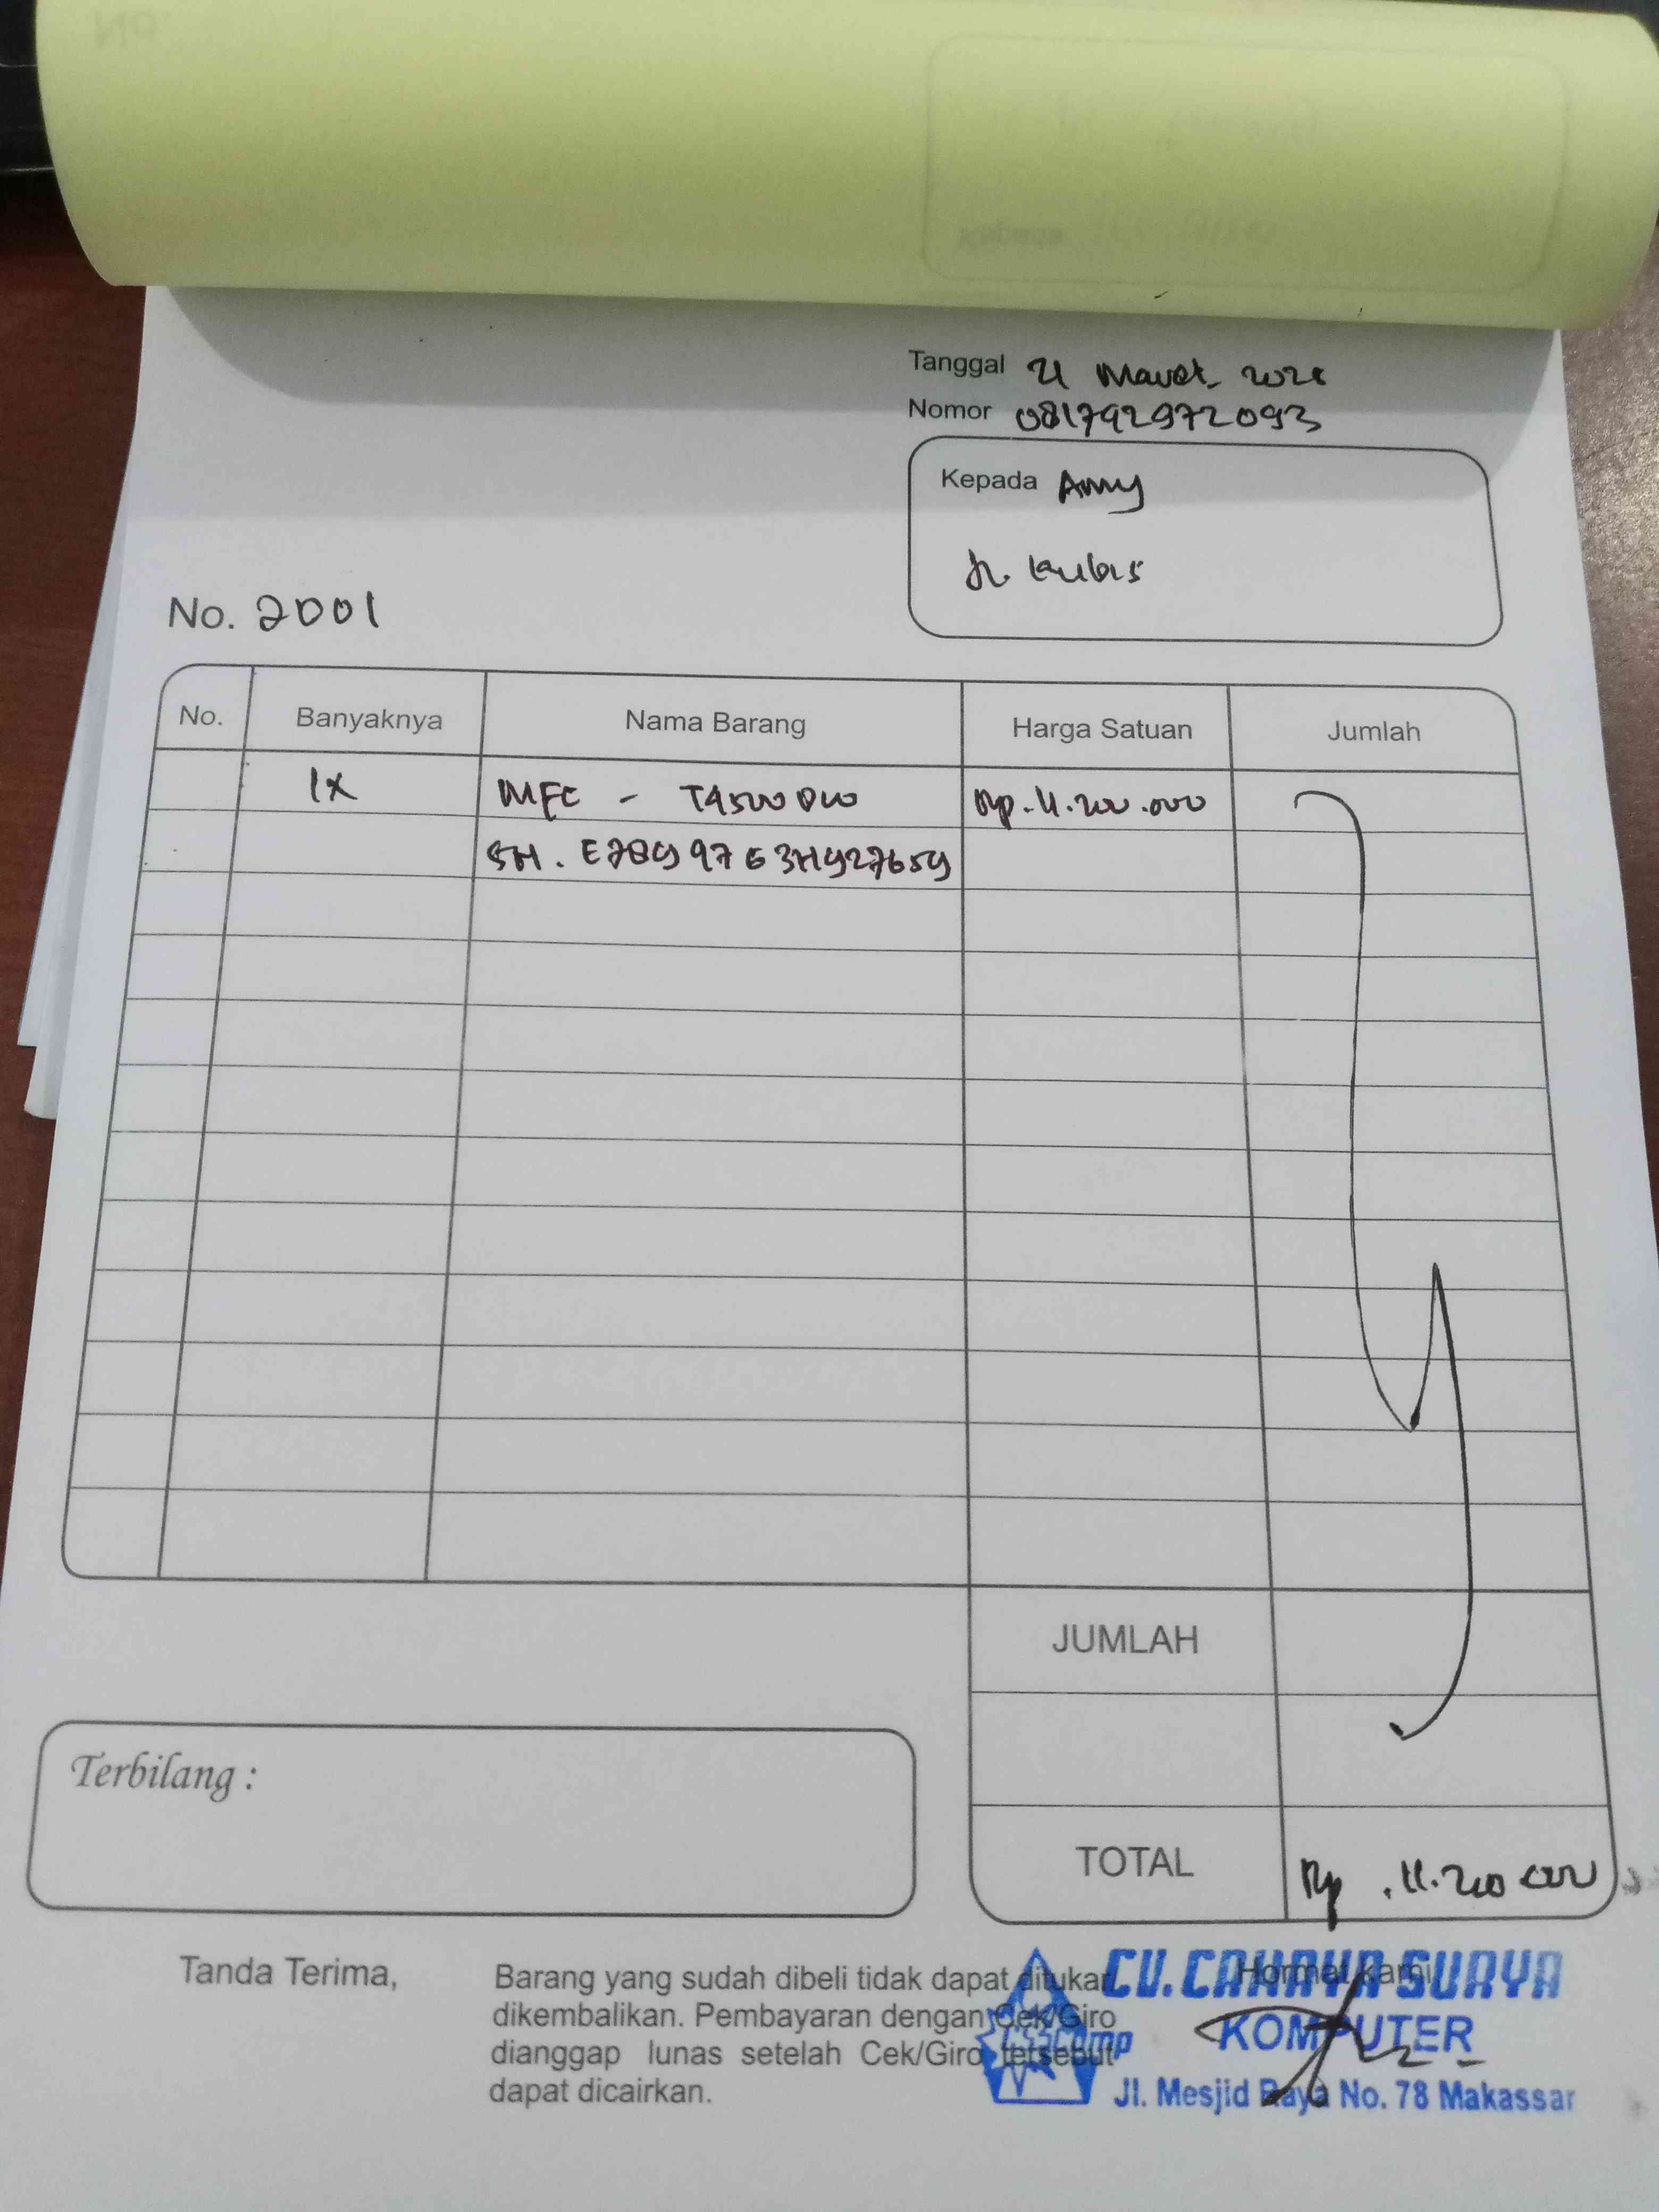 Tanggal 21 Maret 202
Nomor 081792972093
Kepada Anny
Jl. Kubis
No. 2001
No. Banyaknya Nama Barang Harga Satuan Jumlah
1x MFC - T4500DW Rp. 11.200.000
SN. E78997
JUMLAH
Terbilang :
TOTAL Rp. 11.200.000
Tanda Terima,
Barang yang sudah dibeli tidak dapat ditukar
dikembalikan. Pembayaran dengan Cek/Giro
dianggap lunas setelah Cek/Giro tersebut
dapat dicairkan.
Hormat kami
CV. CAHAYA SURYA
KOMPUTER
CSSComp
Jl. Mesjid Raya No. 78 Makassar